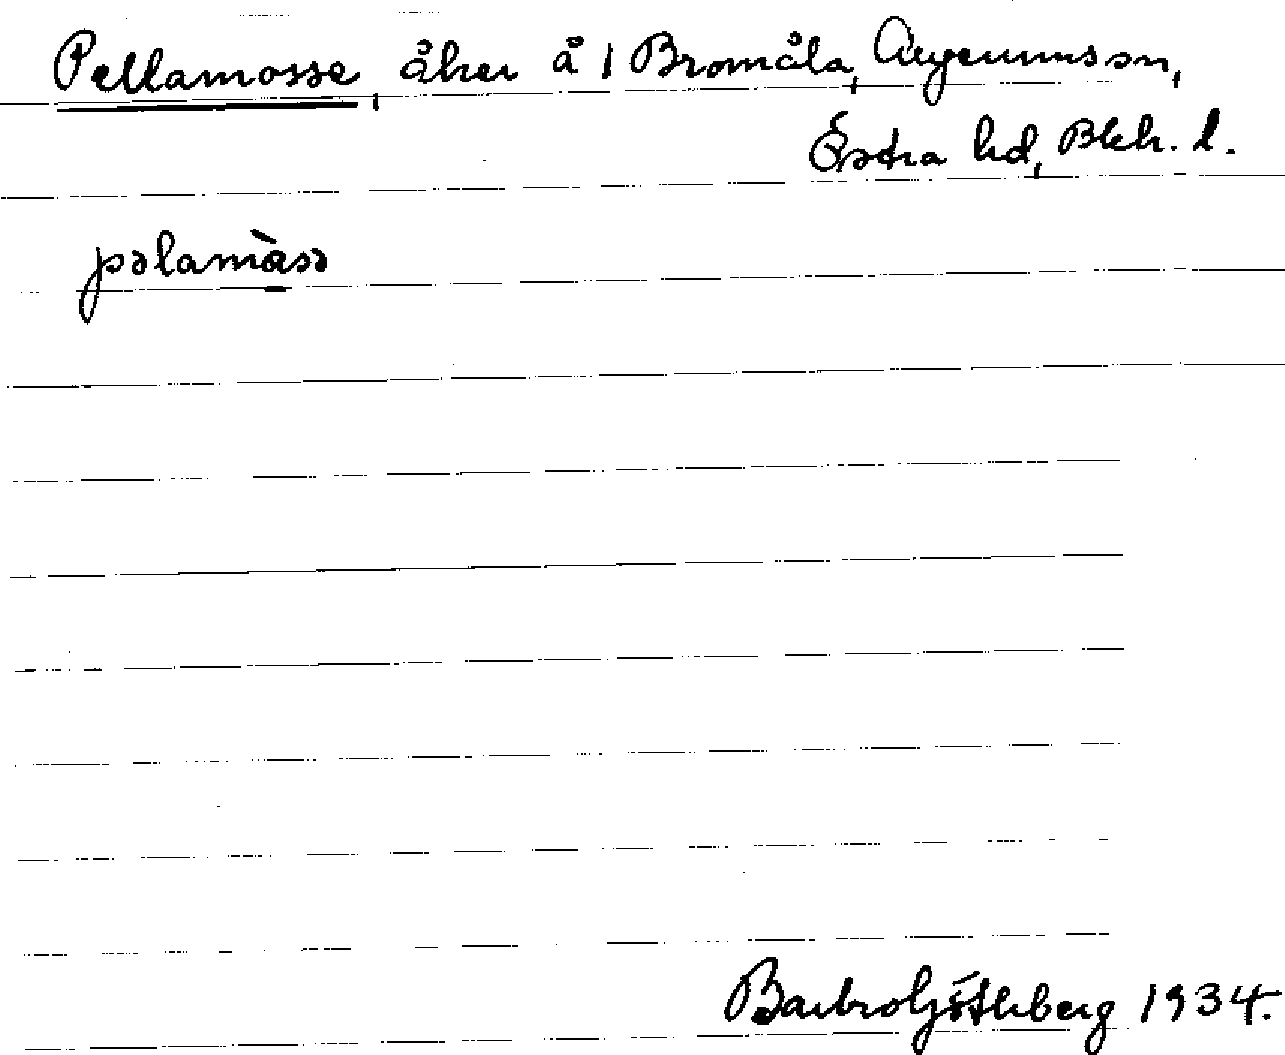 Pellamosse, åker å 1 Bromåla, Augerumssn,
Östra hd, Blek. l.
pəlamàsə
Barbro Götheberg 1934.